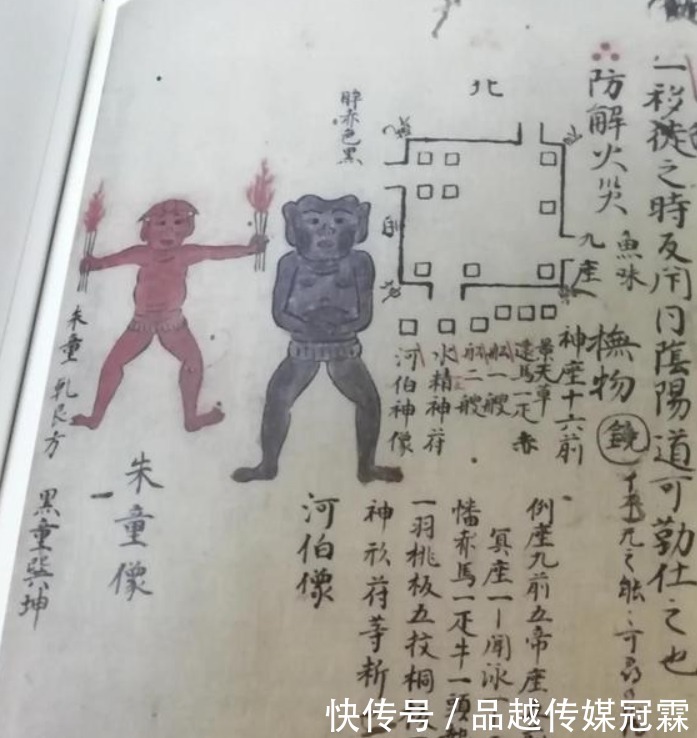 一移徙之時反閇同陰陽道可勤仕之也
防解火災
魚味
撫物
鏡
九座
神座十六前
北
景天草
造馬一疋 赤
船一艘
船二艘
水精神符
河伯神像
倒座九前五帝座
冥座一
幡赤馬一疋牛一頭
一羽桃板五枚桐
神形符等析
河伯像
朱童像
朱童 乳艮方
黑童巽坤
色黑
快传号/品越传媒冠霖